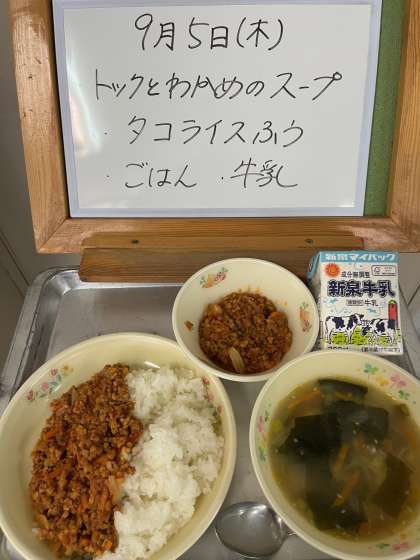 9月5日(木)
トックとわかめのスープ
・タコライスふう
・ごはん ・牛乳
新泉マイパック
成分無調整
新泉牛乳
牛乳